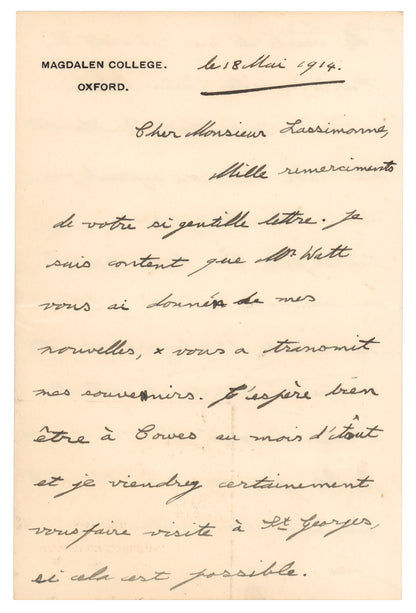 MAGDALEN COLLEGE.
OXFORD.
le 18 Mai 1914.
Cher Monsieur Lassimonne,
Mille remerciments
de votre si gentille lettre. Je
suis content que Mr Watt
vous ai donné de mes
nouvelles, & vous a transmit
mes souvenirs. J'espère bien
être à Cowes au mois d'
et je viendrez certainement
vous faire visite à St. Georges,
si cela est possible.